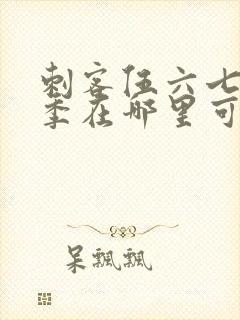 刺客伍六七
季在哪里可
呆飘飘